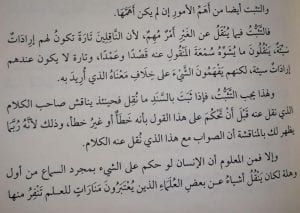 والتثبت أيضا من أهم الأمور إن لم يكن أهمها.
فالتَّثَبُّتُ فيما يُنْقَلُ عن الغَيْرِ أَمْرٌ مُهِمٌّ، لأن النَّاقِلِينَ تَارَةً تكونُ لهم إرادَاتٌ
سيئةٌ، يَنْقُلُونَ ما يُشَوِّهُ سُمْعَةَ المَنْقُولِ عنه قصْدًا وعَمْدًا، وتارة لا يكون عندهم
إراداتٌ سيئة، لكنهم يَفْهَمُونَ الشَّيْءَ على خِلَافِ مَعْنَاهُ الذي أُرِيدَ به.
وهذا يجب التَّثَبُّتُ، فإذا ثبَتَ بالسَّنَدِ ما نُقِل فحينئذ يناقش صاحب الكلام
الذي نقل عنه قَبْلَ أَنْ تَحْكُمَ على هذا القول بأنه خطَأٌ أو غيرُ خطأ، وذلك لأَنَّهُ رُبَّمَا
يظهر لك بالمناقشة أن الصواب مع هذا الذي نُقِل عنه الكلام.
وإلا فمن المعلوم أن الإنسان لو حكم على الشيء بمجرد السماع من أول
وهلة لكان يَنْقُلُ أشياءَ عن بعضِ العُلَمَاءِ الذين يُعْتَبَرُونَ مَنَارَاتٍ للعـلم تَنْفِرُ منها